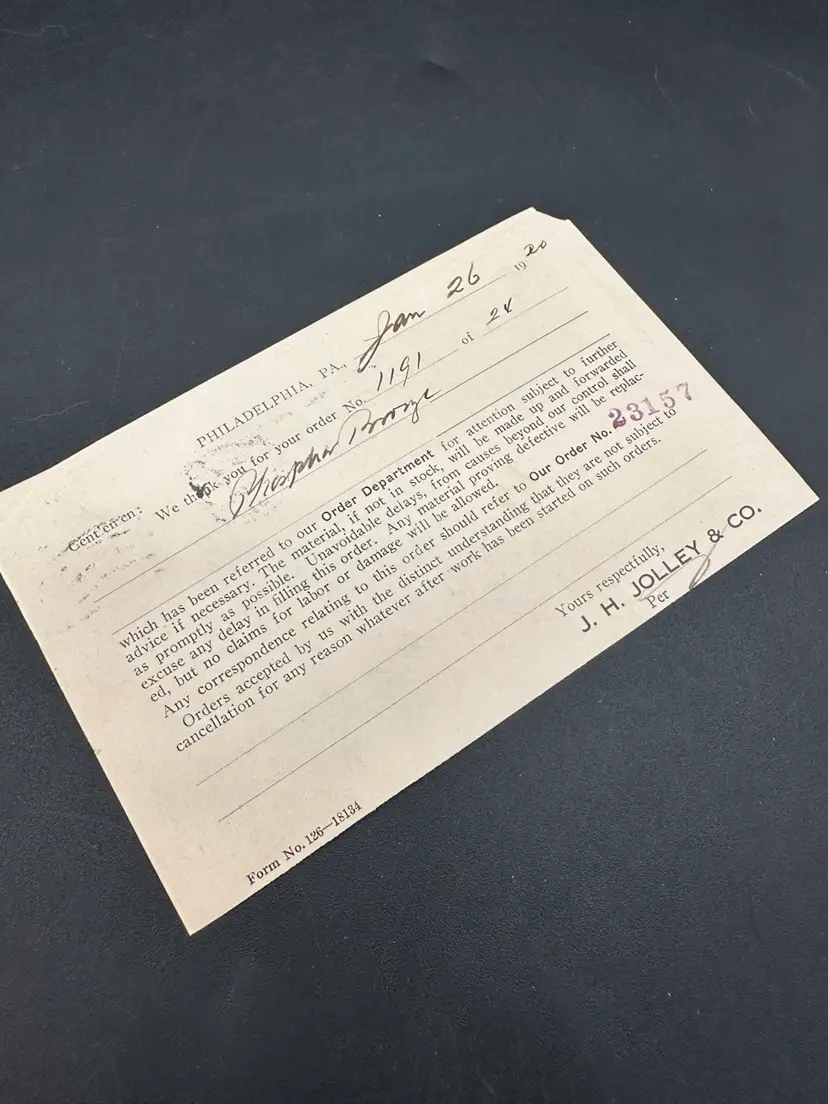 PHILADELPHIA, PA., Jan 26 1920
Gentlemen:
We thank you for your order No. 1191 of 24
Phosphor Bronze
which has been referred to our Order Department for attention subject to further
advice if necessary. The material, if not in stock, will be made up and forwarded
as promptly as possible. Unavoidable delays, from causes beyond our control shall
excuse any delay in filling this order. Any material proving defective will be replac-
ed, but no claims for labor or damage will be allowed.
Any correspondence relating to this order should refer to Our Order No. 23157
Orders accepted by us with the distinct understanding that they are not subject to
cancellation for any reason whatever after work has been started on such orders.
Yours respectfully,
J. H. JOLLEY & CO.
Per
Form No. 126—18134